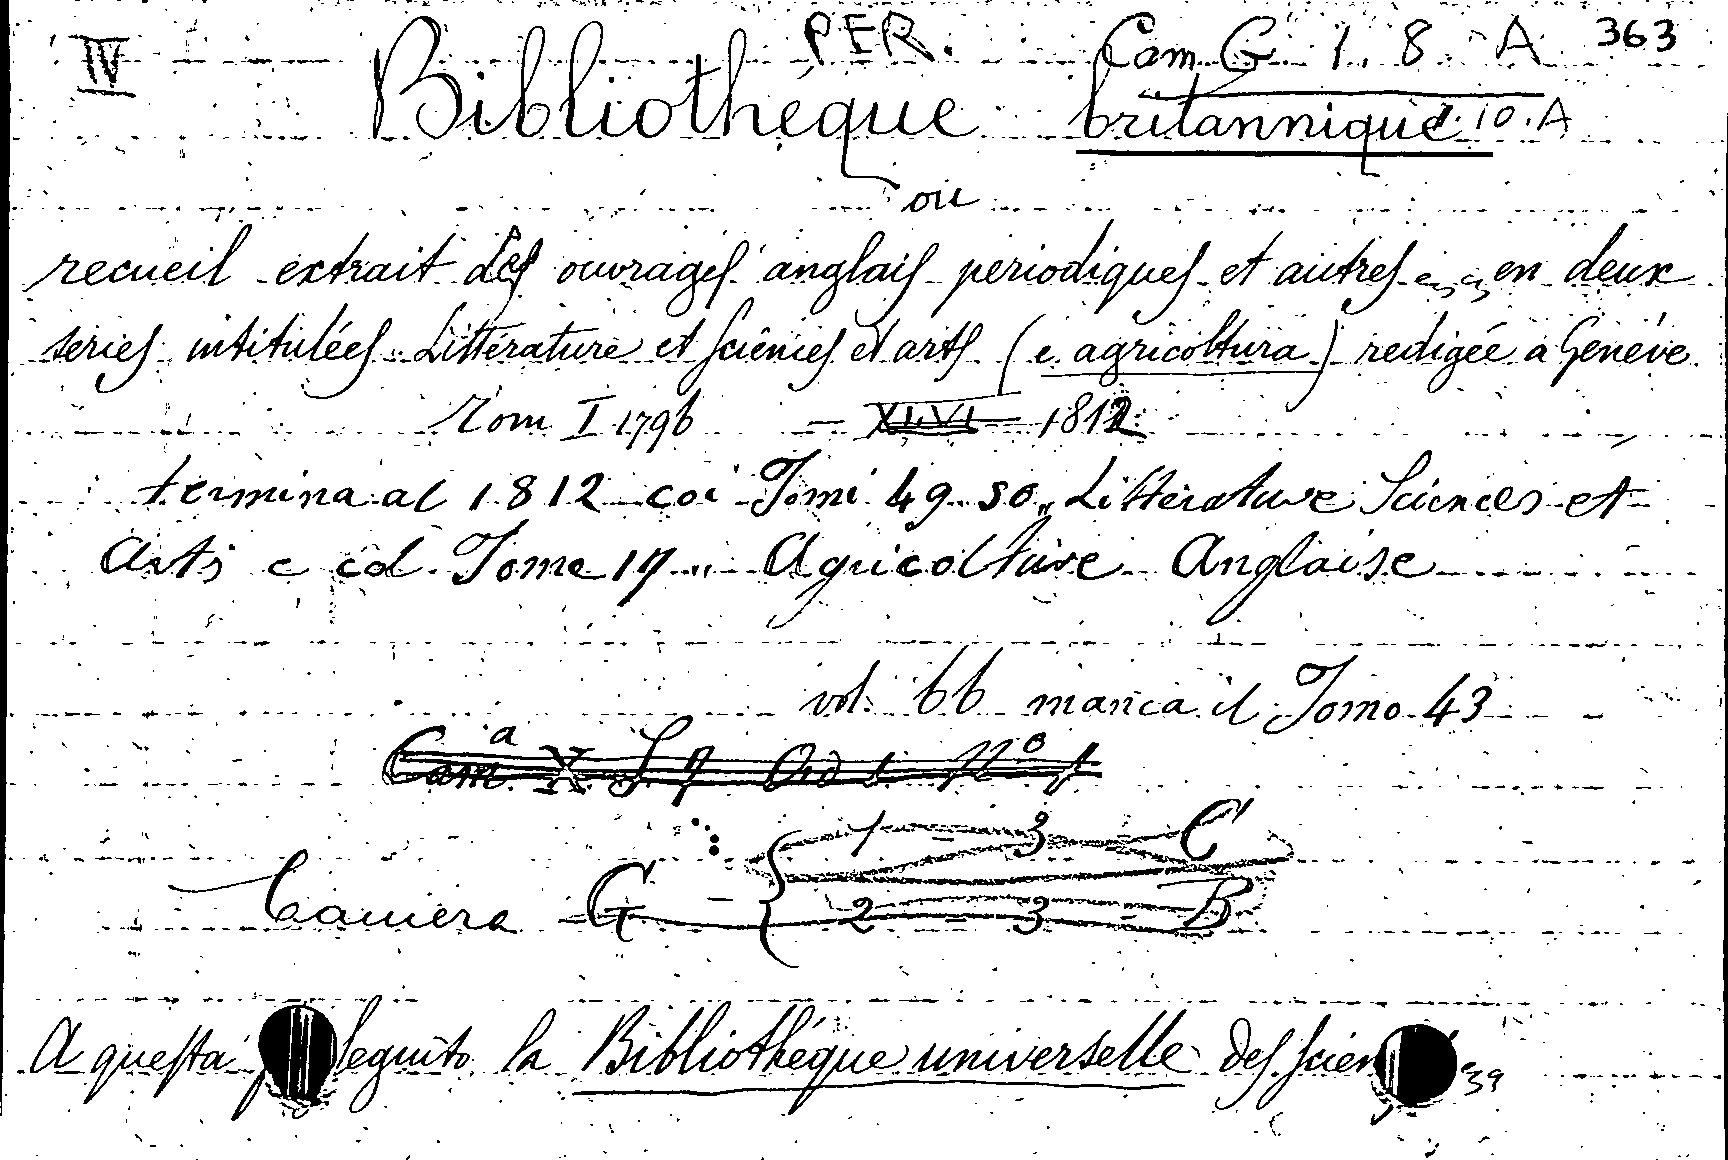 IV PER. Cam. G 1. 8. A 363
Bibliothéque britannique 1.10.A
ou
recueil extrait des ouvrages anglais periodiques et autres en deux
series intitulées „ Littérature et sciences et arts (e agricoltura) redigée a Genéve
Tom I 1796 — XLVI — 1812
termina al 1812 coi Tomi 49. 50 „ Littérature Sciences et
Arts e col Tome 17 „ Agricolture Anglaise
vol. 66 manca il Tomo 43
Cam.a X S 7 Ord 1 No 1
Camera G - { 1 - 3 - C
2 - 3 - B
A questa seguito la Bibliothéque universelle des
39